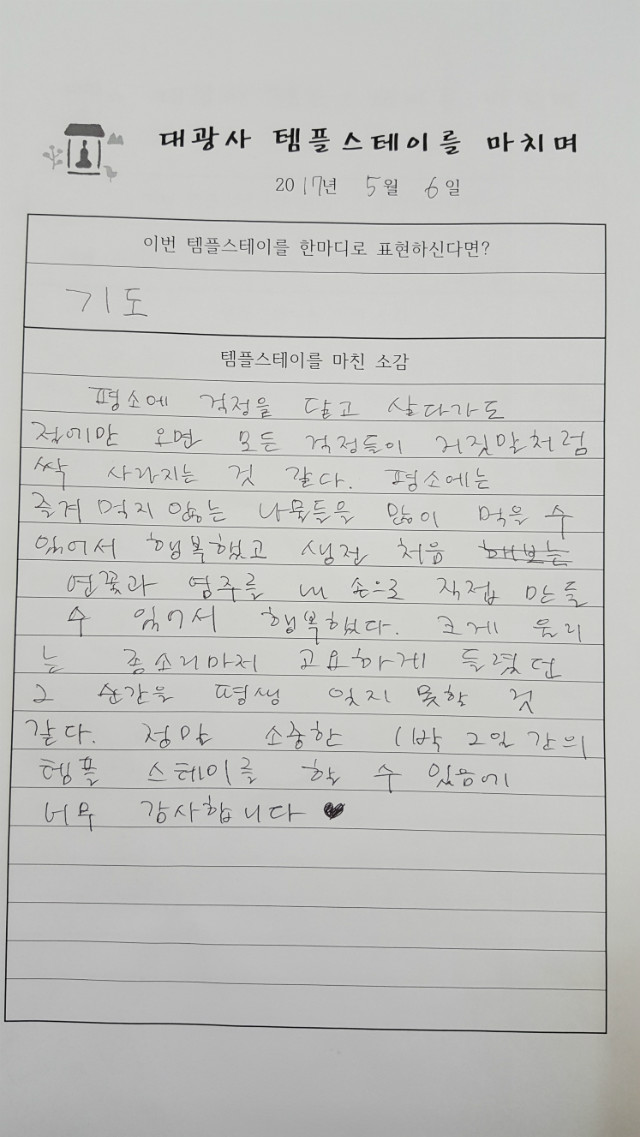 대광사 템플스테이를 마치며
2017년 5월 6일
이번 템플스테이를 한마디로 표현하신다면?
기도
템플스테이를 마친 소감
평소에 걱정을 달고 살다가도
절에만 오면 모든 걱정들이 거짓말처럼
싹 사라지는 것 같다. 평소에는
즐겨 먹지 않는 나물들을 많이 먹을 수
있어서 행복했고 생전 처음 해보는
연꽃과 염주를 내 손으로 직접 만들
수 있어서 행복했다. 크게 울리
는 종소리마저 고요하게 들렸던
그 순간을 평생 잊지 못할 것
같다. 정말 소중한 1박 2일 간의
템플 스테이를 할 수 있음에
너무 감사합니다 ♥